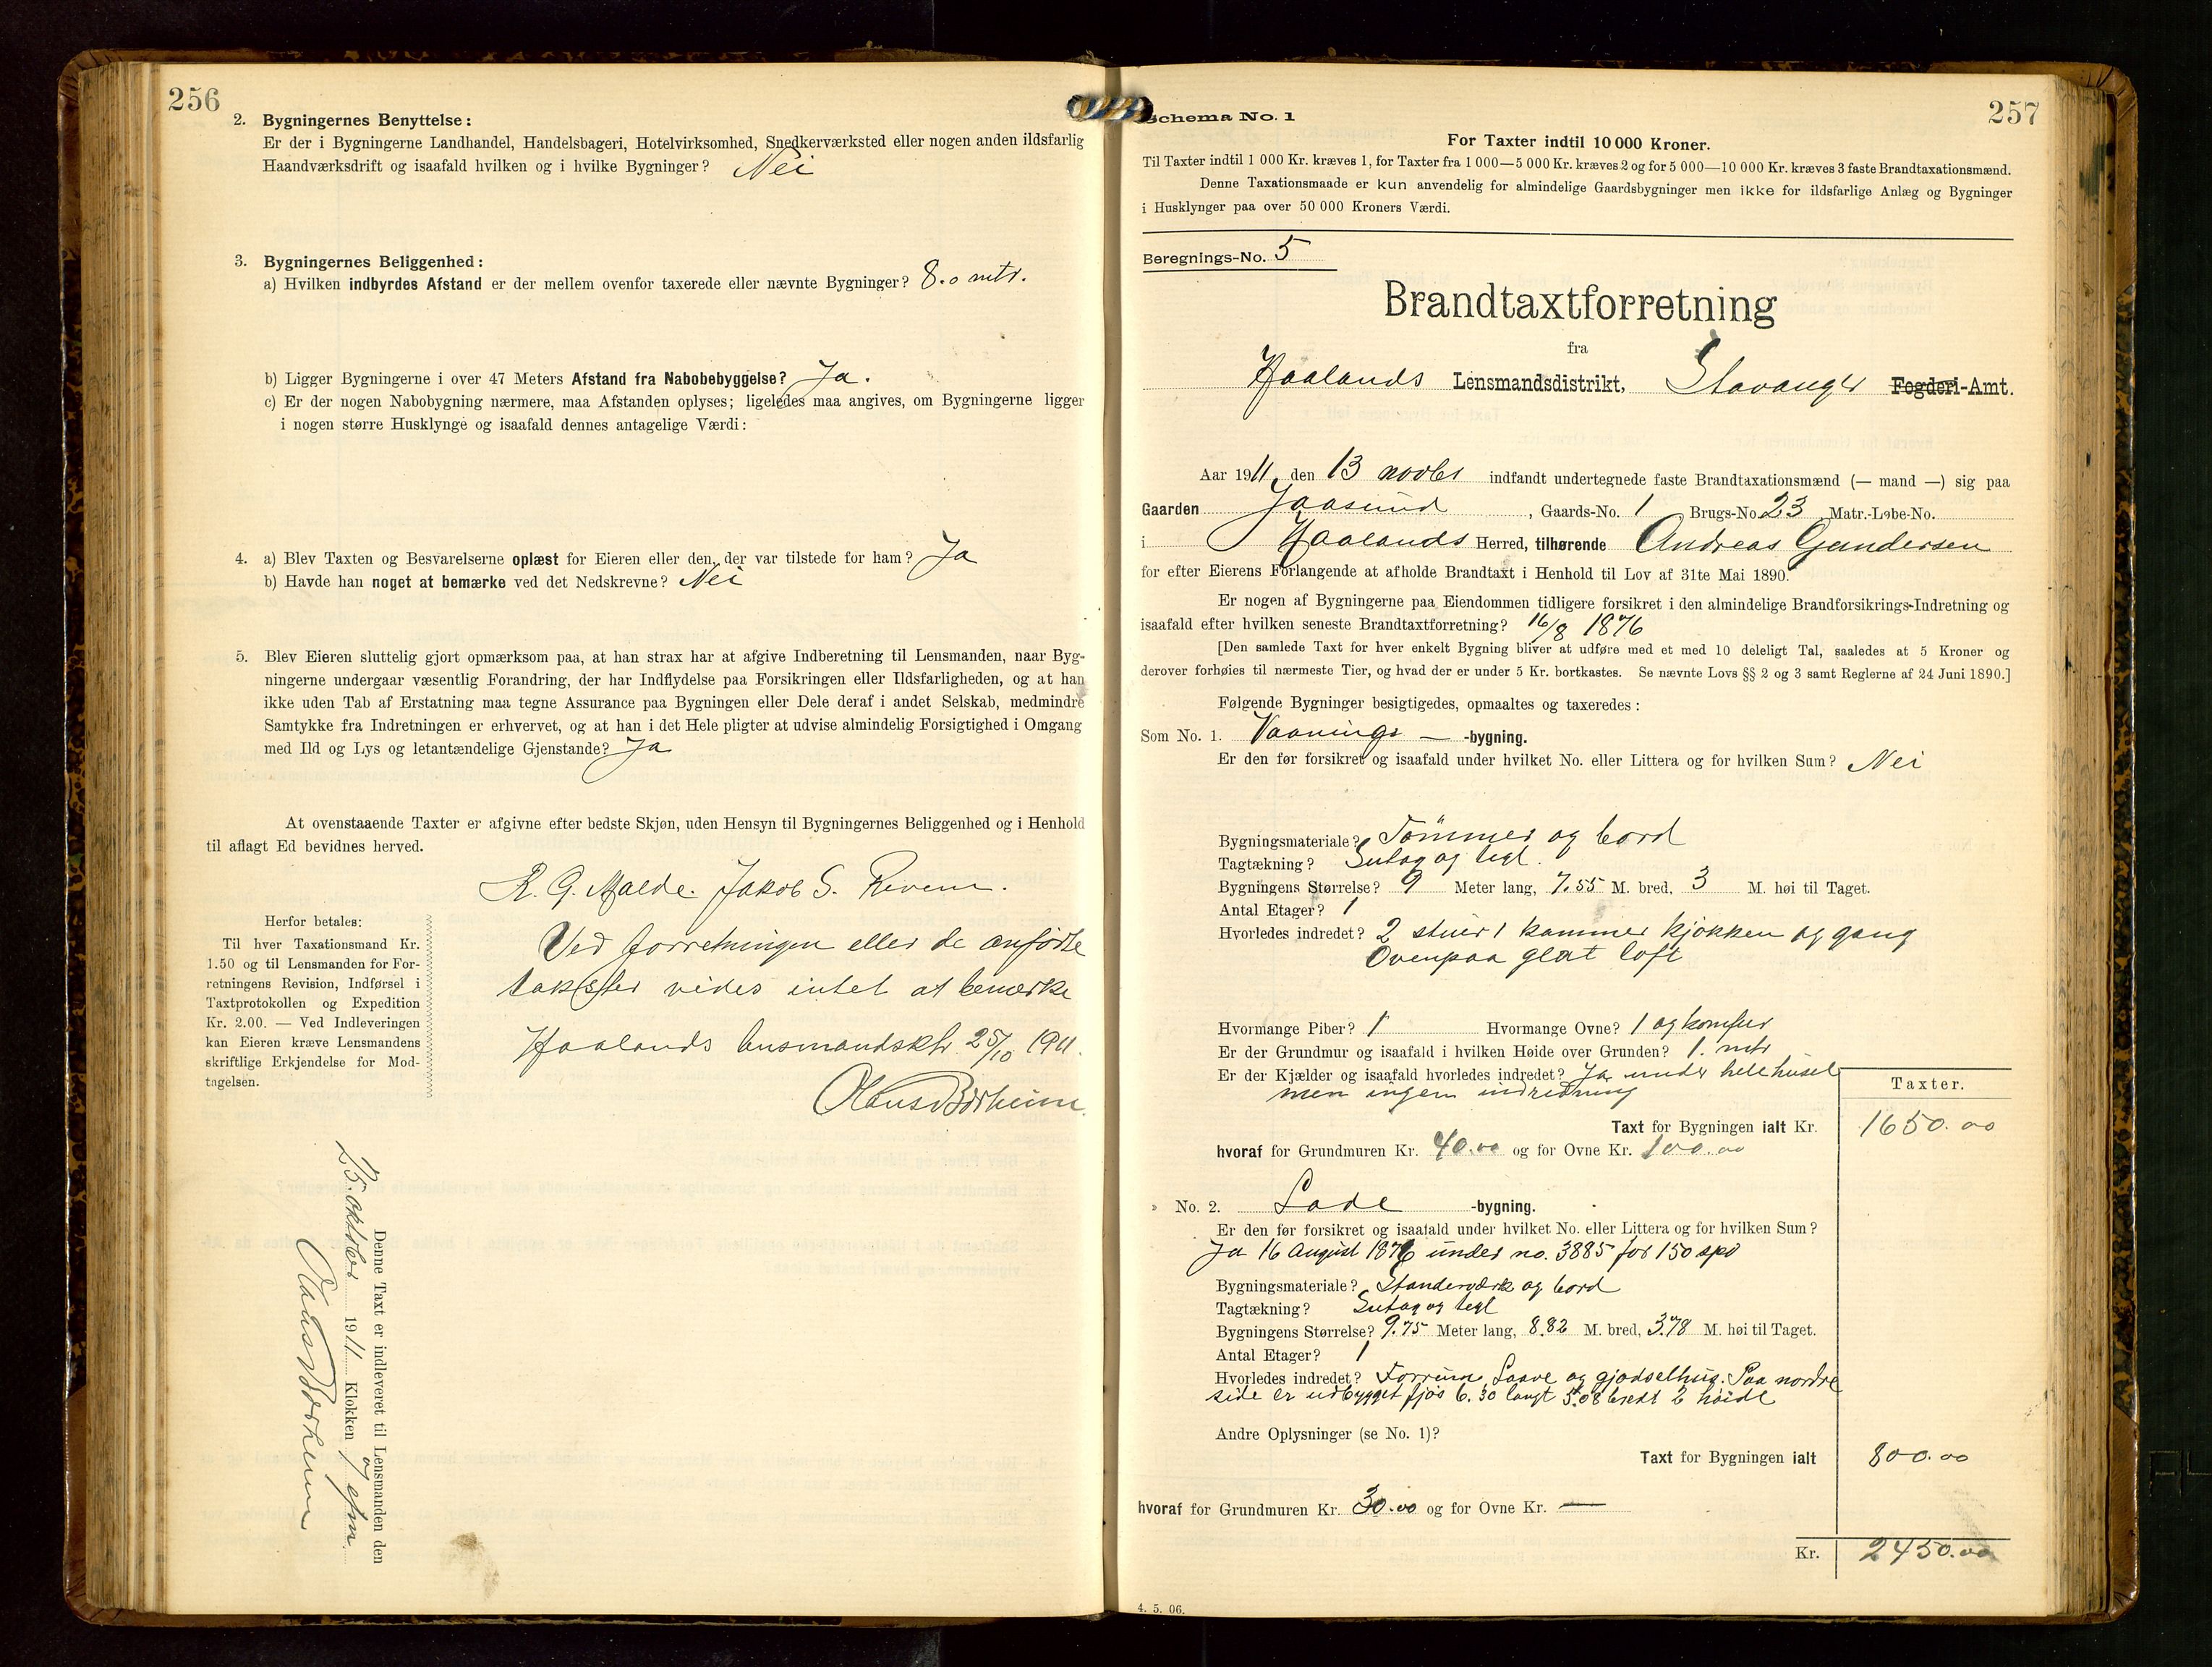 256
2. Bygningernes Benyttelse:
Er der i Bygningerne Landhandel, Handelsbageri, Hotelvirksomhed, Snedkerværksted eller nogen anden ildsfarlig
Haandværksdrift og isaafald hvilken og i hvilke Bygninger? Nei
3. Bygningernes Beliggenhed:
a) Hvilken indbyrdes Afstand er der mellem ovenfor taxerede eller nævnte Bygninger? 8.0 mtr.
b) Ligger Bygningerne i over 47 Meters Afstand fra Nabobebyggelse? Ja.
c) Er der nogen Nabobygning nærmere, maa Afstanden oplyses; ligeledes maa angives, om Bygningerne ligger
i nogen større Husklynge og isaafald dennes antagelige Værdi:
4. a) Blev Taxten og Besvarelserne oplæst for Eieren eller den, der var tilstede for ham? Ja
b) Havde han noget at bemærke ved det Nedskrevne? Nei
5. Blev Eieren sluttelig gjort opmærksom paa, at han strax har at afgive Indberetning til Lensmanden, naar Byg-
ningerne undergaar væsentlig Forandring, der har Indflydelse paa Forsikringen eller Ildsfarligheden, og at han
ikke uden Tab af Erstatning maa tegne Assurance paa Bygningen eller Dele deraf i andet Selskab, medmindre
Samtykke fra Indretningen er erhvervet, og at han i det Hele pligter at udvise almindelig Forsigtighed i Omgang
med Ild og Lys og letantændelige Gjenstande? Ja
At ovenstaaende Taxter er afgivne efter bedste Skjøn, uden Hensyn til Bygningernes Beliggenhed og i Henhold
til aflagt Ed bevidnes herved.
R. G. Malde. Jakob S. Revem.
Herfor betales:
Til hver Taxationsmand Kr.
1.50 og til Lensmanden for For-
retningens Revision, Indførsel i
Taxtprotokollen og Expedition
Kr. 2.00. — Ved Indleveringen
kan Eieren kræve Lensmandens
skriftlige Erkjendelse for Mod-
tagelsen.
Ved forretningen eller de anførte
takster vides intet at bemærke
Haalands lensmandsktr. 25/10 1911.
Olaus Borheim
Denne Taxt er indleveret til Lensmanden den
25. oktober 1911 Klokken 7 efm.
Olaus Borheim
257
Schema No. 1
For Taxter indtil 10 000 Kroner.
Til Taxter indtil 1 000 Kr. kræves 1, for Taxter fra 1 000—5 000 Kr. kræves 2 og for 5 000—10 000 Kr. kræves 3 faste Brandtaxationsmænd.
Denne Taxationsmaade er kun anvendelig for almindelige Gaardsbygninger men ikke for ildsfarlige Anlæg og Bygninger
i Husklynger paa over 50 000 Kroners Værdi.
Beregnings-No. 5
Brandtaxtforretning
fra
Haalands Lensmandsdistrikt, Stavanger Fogderi-Amt.
Aar 1911, den 13 novbr indfandt undertegnede faste Brandtaxationsmænd (— mand —) sig paa
Gaarden Jaasund, Gaards-No. 1 Brugs-No. 23 Matr.-Løbe-No.
i Haalands Herred, tilhørende Andreas Gundersen
for efter Eierens Forlangende at afholde Brandtaxt i Henhold til Lov af 31te Mai 1890.
Er nogen af Bygningerne paa Eiendommen tidligere forsikret i den almindelige Brandforsikrings-Indretning og
isaafald efter hvilken seneste Brandtaxtforretning? 16/8 1876
[Den samlede Taxt for hver enkelt Bygning bliver at udføre med et med 10 deleligt Tal, saaledes at 5 Kroner og
derover forhøies til nærmeste Tier, og hvad der er under 5 Kr. bortkastes. Se nævnte Lovs §§ 2 og 3 samt Reglerne af 24 Juni 1890.]
Følgende Bygninger besigtigedes, opmaaltes og taxeredes:
Som No. 1. Vaanings — -bygning.
Er den før forsikret og isaafald under hvilket No. eller Littera og for hvilken Sum? Nei
Bygningsmateriale? Tømmer og bord
Tagtækning? Sutag og tegl.
Bygningens Størrelse? 9 Meter lang, 7.55 M. bred, 3 M. høi til Taget.
Antal Etager? 1
Hvorledes indredet? 2 stuer 1 kammer kjøkken og gang
Ovenpaa glat loft
Hvormange Piber? 1 Hvormange Ovne? 1 og komfur
Er der Grundmur og isaafald i hvilken Høide over Grunden? 1. mtr
Er der Kjælder og isaafald hvorledes indredet? Ja under hele huset
men ingen indredning
Taxter.
Taxt for Bygningen ialt Kr. 1650.00
hvoraf for Grundmuren Kr. 40.00 og for Ovne Kr. 100.00
» No. 2. Lade -bygning.
Er den før forsikret og isaafald under hvilket No. eller Littera og for hvilken Sum?
Ja 16 August 1876 under no. 3885 for 150 spd
Bygningsmateriale? Standerværk og bord
Tagtækning? Sutag og tegl
Bygningens Størrelse? 9.75 Meter lang, 8.82 M. bred, 3.78 M. høi til Taget.
Antal Etager? 1
Hvorledes indredet? Forrum, Laave og gjødselhus. Paa nordre
side er udbygget fjøs 6.30 langt 5.08 bredt 2 høide
Andre Oplysninger (se No. 1)?
Taxt for Bygningen ialt 800.00
hvoraf for Grundmuren Kr. 30.00 og for Ovne Kr. —
Kr. 2450.00
4. 5. 06.